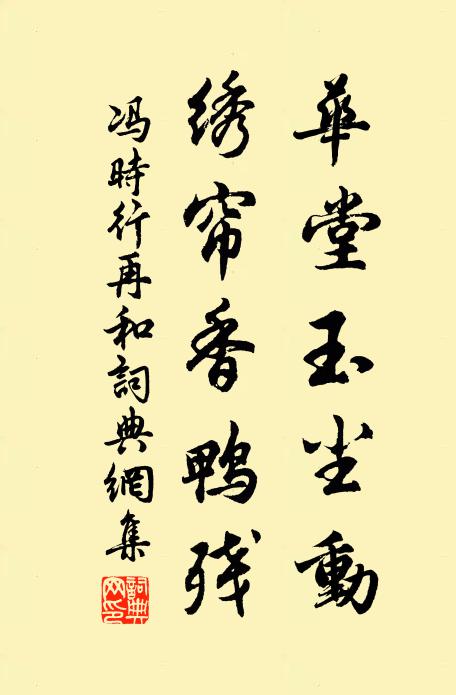 華堂玉尘動
绣帘香鴨残
冯時行再和詞典網集
詞典网印